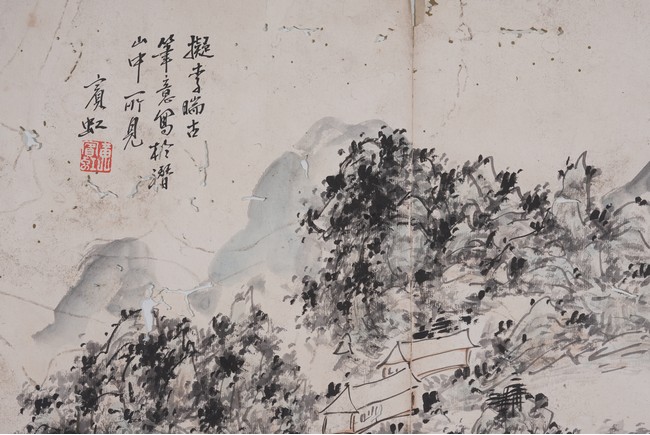 擬李晞古
筆意寫於潛
山中所見
賓虹
黃賓虹